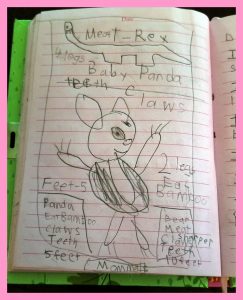 Date
Meat-Rex
4 legs
Baby Panda
teeth Claws
2 legs
Feet-5
Eat
Bamboo
Panda
Eat Bamboo
Claws
Teeth
5 feet
Bear
Meat
Sharper
Teeth
10 feet
Mammals